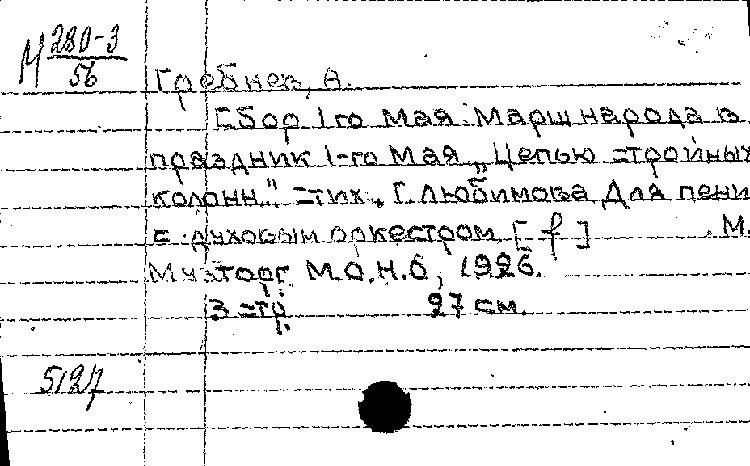 М 280-3
56
Гребнев, А.
Сбор 1го Мая. Марш народа в
праздник 1-го Мая „Цепью стройных
колонн". Стих. Г. Любимова Для пени
с духовым оркестром [f] М.
Музторг. М.О.Н.О, 1926.
3 стр. 27 см.
5127